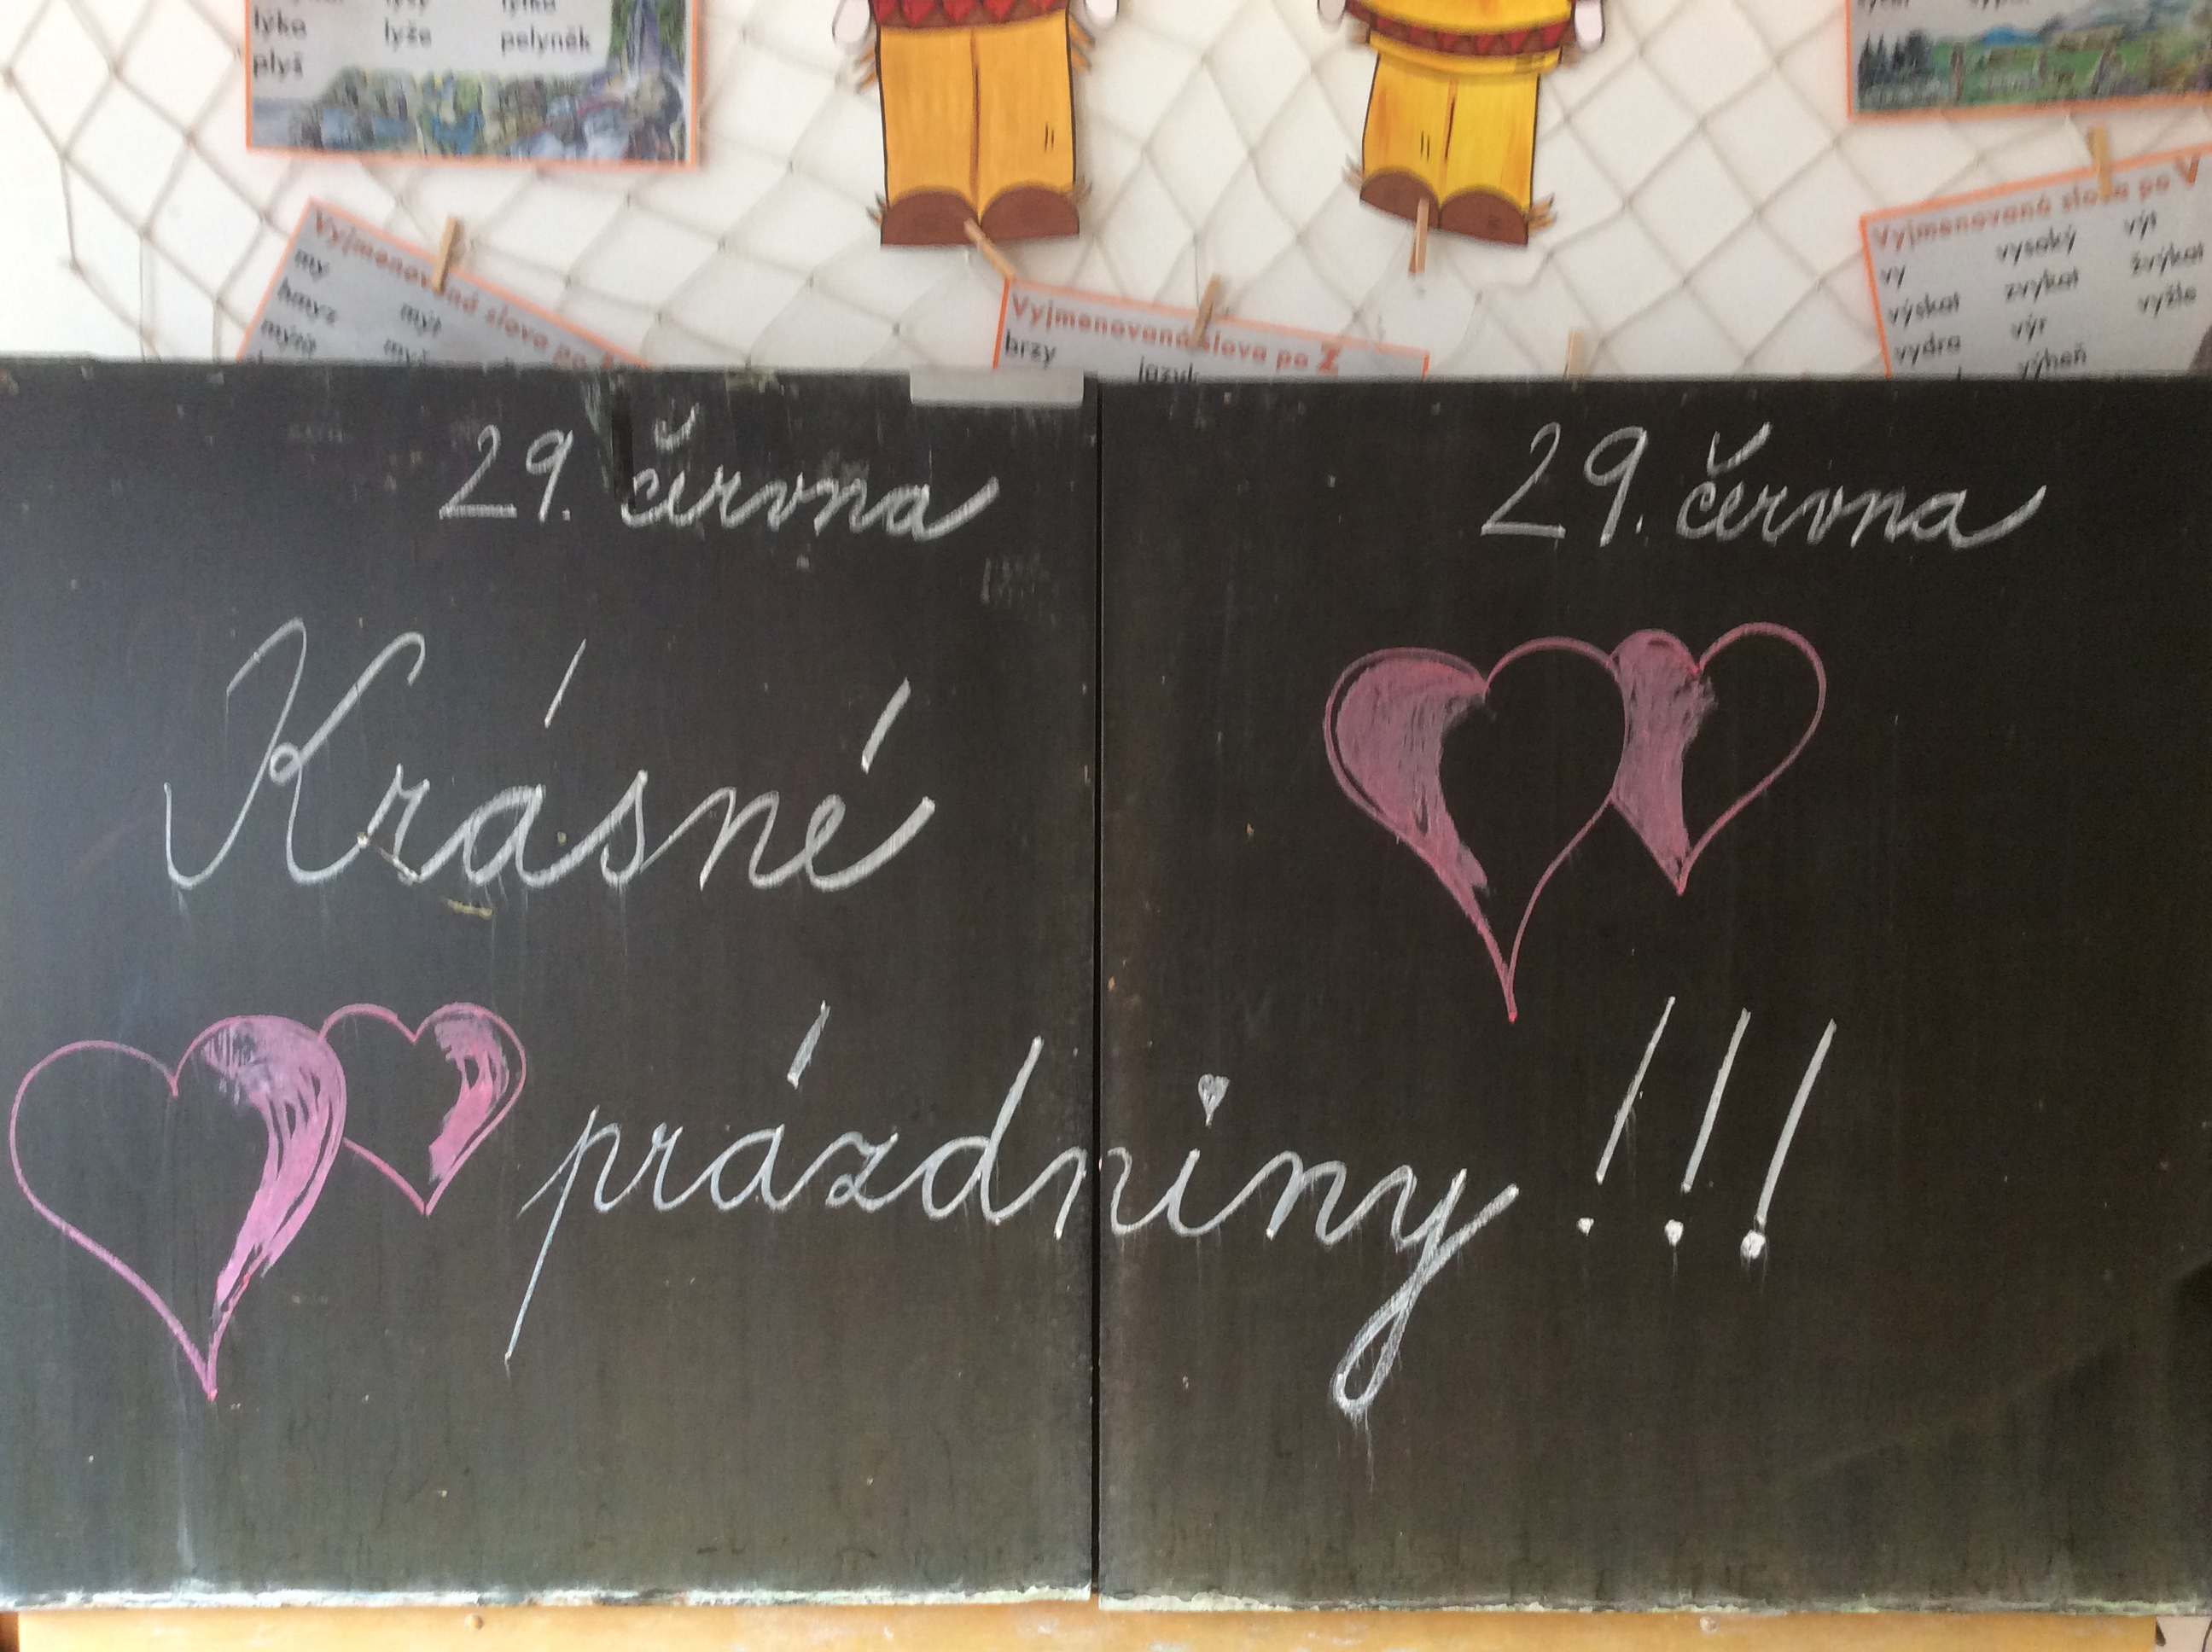 lyko lyže pelyněk
plyš
Vyjmenovaná slova po
my
hmyz mýt
mýto
Vyjmenovaná slova po Z
brzy jazyk
Vyjmenovaná slova po V
vy vysoký výt
výskat zvykat žvýkat
vydra výr vyžle
výheň
29. června 29. června
Krásné
prázdniny!!!